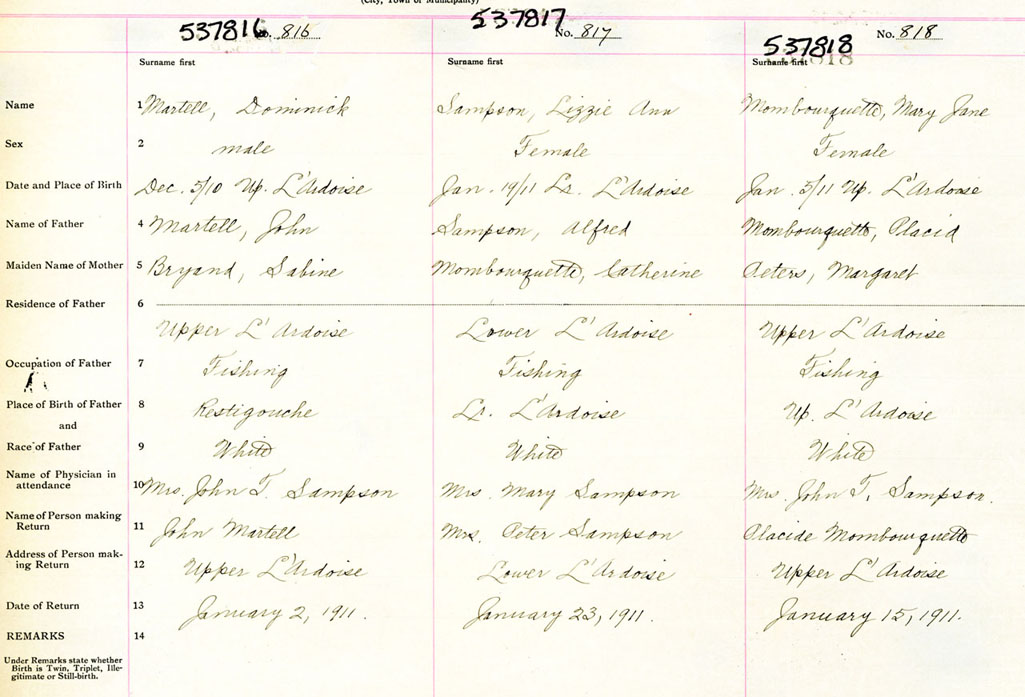 (City, Town or Municipality)
537816 No. 816 537817 No. 817 537818 No. 818
Surname first Surname first Surname first 818
Name 1 Martell, Dominick Sampson, Lizzie Ann Mombourquette, Mary Jane
Sex 2 male Female Female
Date and Place of Birth Dec. 5/10 Up. L'Ardoise Jan. 19/11 Lr. L'Ardoise Jan. 5/11 Up. L'Ardoise
Name of Father 4 Martell, John Sampson, Alfred Mombourquette, Placid
Maiden Name of Mother 5 Bryand, Sabine Mombourquette, Catherine Peters, Margaret
Residence of Father 6
Upper L'Ardoise Lower L'Ardoise Upper L'Ardoise
Occupation of Father 7 Fishing Fishing Fishing
Place of Birth of Father 8 Restigouche Lr. L'Ardoise Up. L'Ardoise
and
Race of Father 9 White White White
Name of Physician in
attendance 10 Mrs. John T. Sampson Mrs. Mary Sampson Mrs. John T. Sampson.
Name of Person making
Return 11 John Martell Mrs. Peter Sampson Placide Mombourquette
Address of Person mak-
ing Return 12 Upper L'Ardoise Lower L'Ardoise Upper L'Ardoise
Date of Return 13 January 2, 1911. January 23, 1911. January 15, 1911.
REMARKS 14
Under Remarks state whether
Birth is Twin, Triplet, Ille-
gitimate or Still-birth.